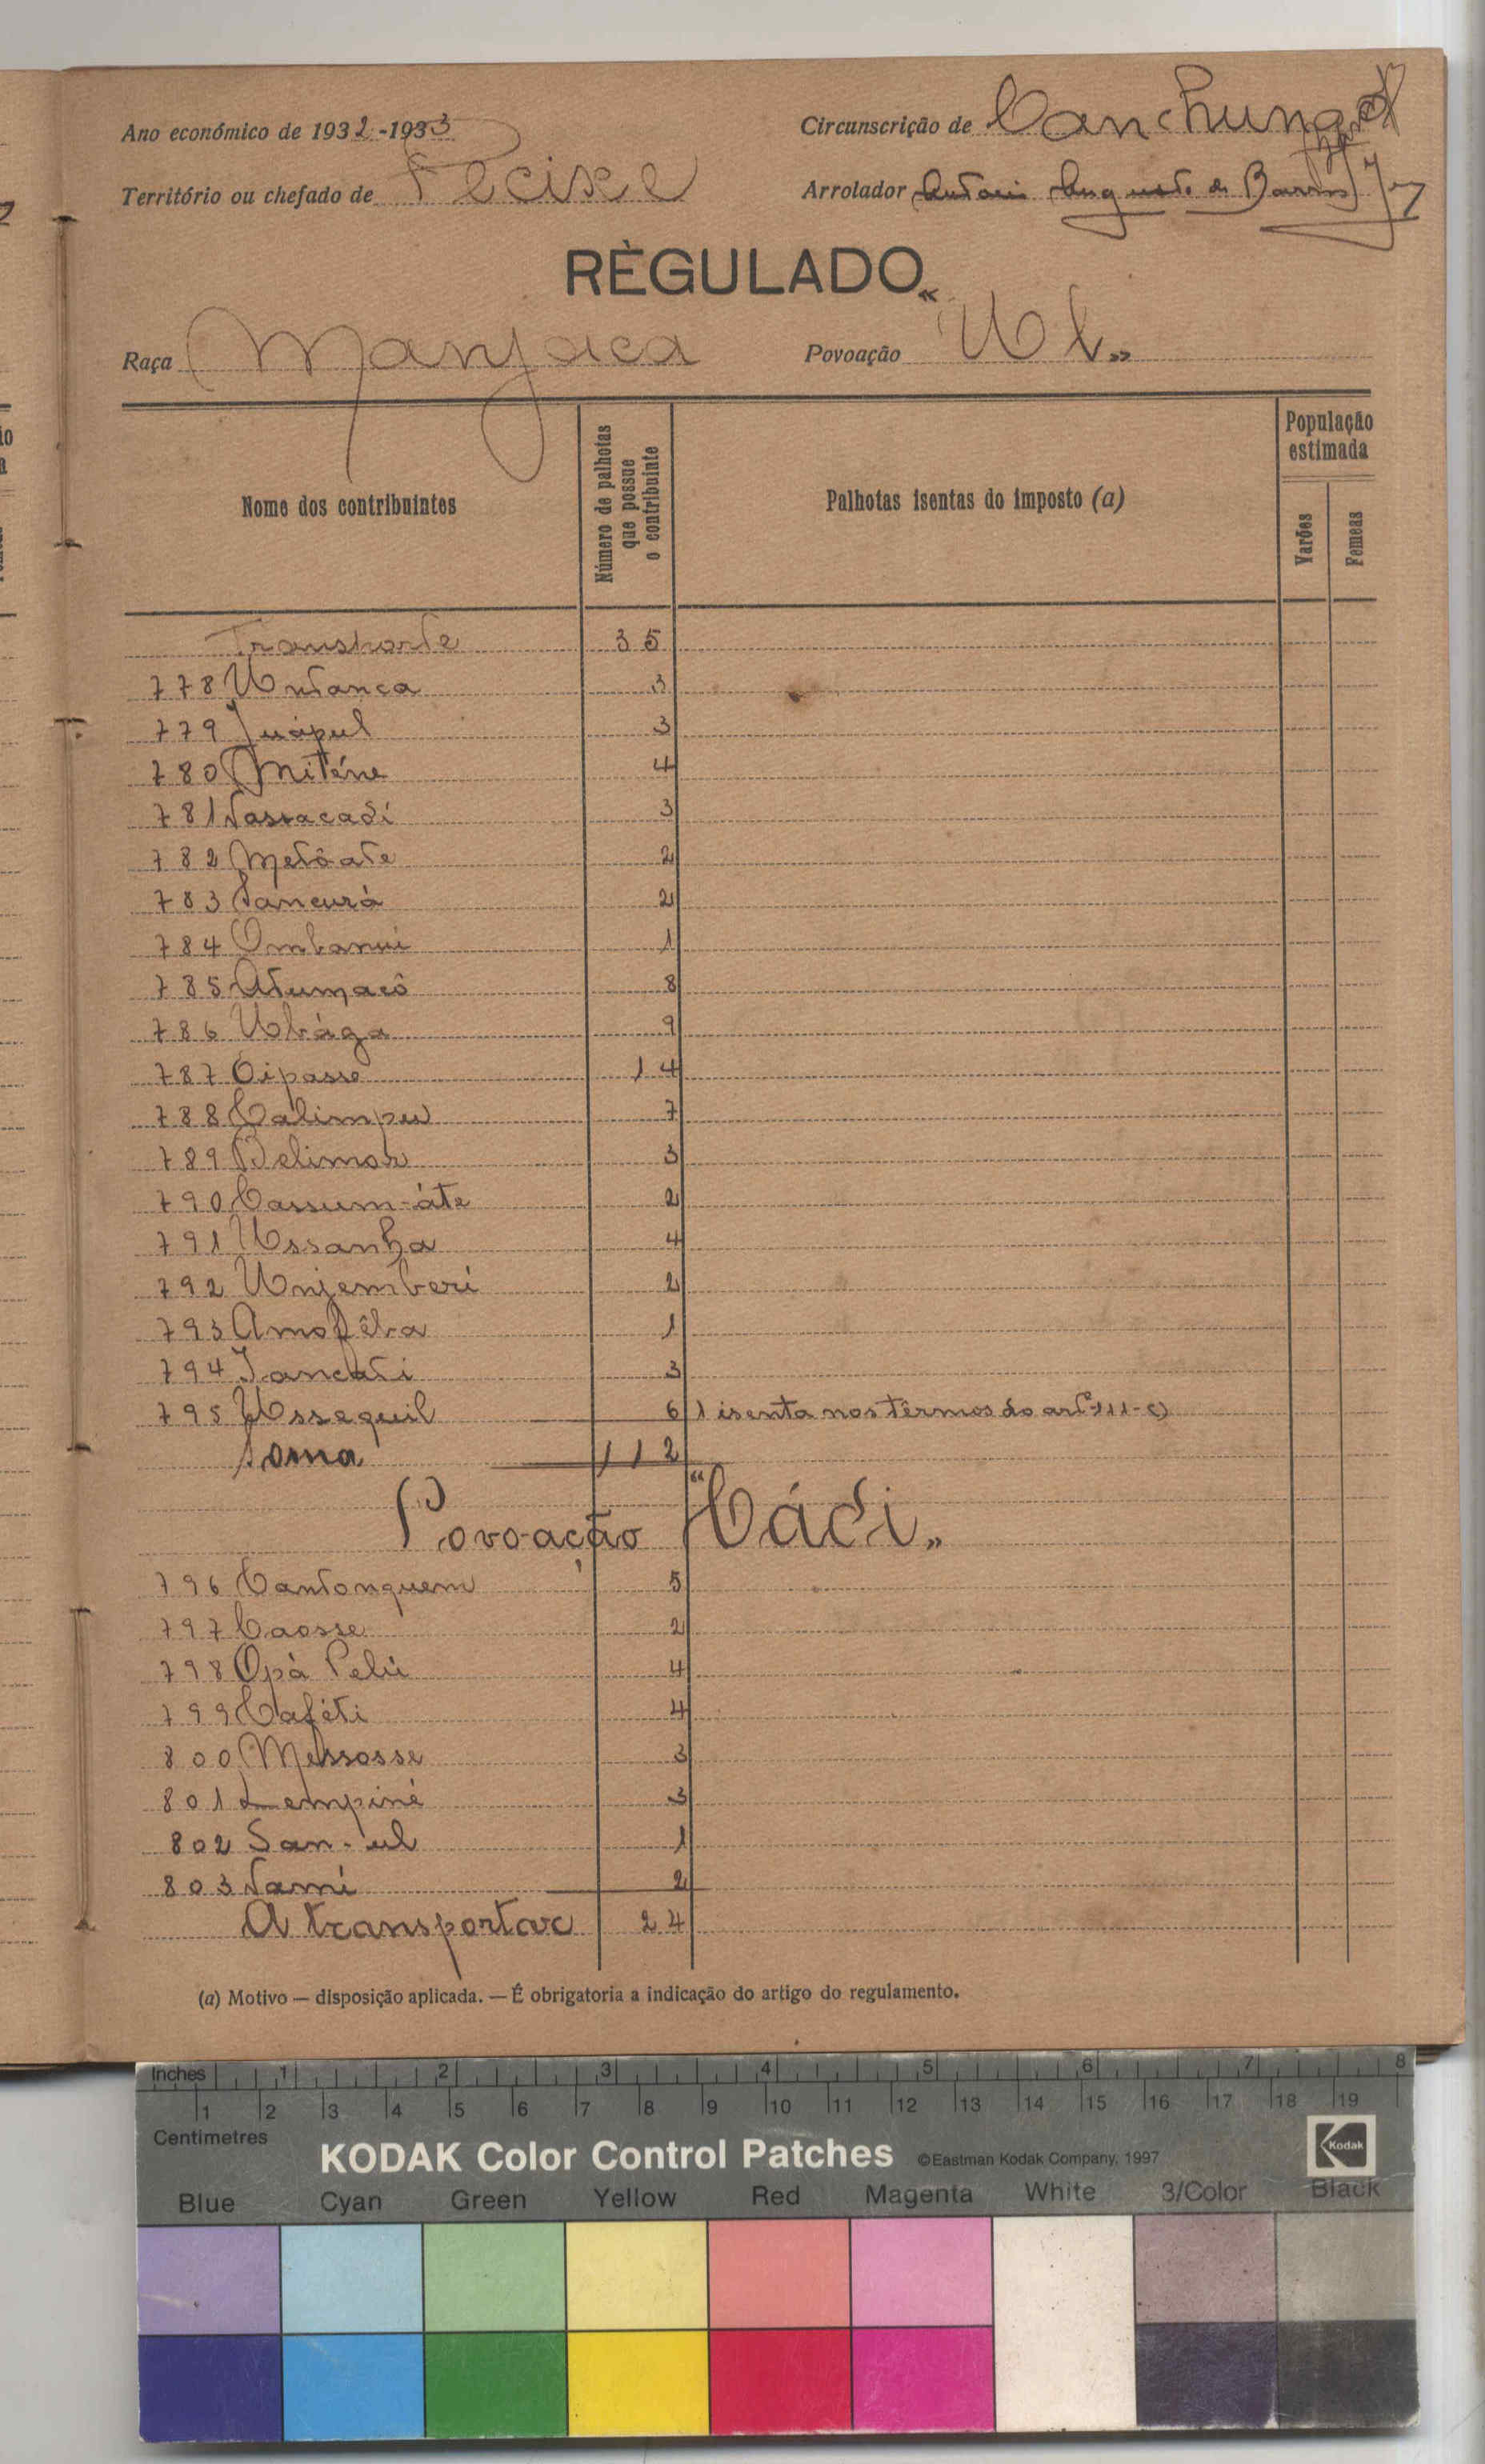 Ano económico de 1932-1933
Circunscrição de Canchungo
Território ou chefado de Pecixe
Arrolador Antonio Augusto de Barros
RÈGULADO
Raça Manjaca
Povoação "Ul"
Nome dos contribuintes
Número de palhotas que possue o contribuinte
Palhotas isentas do imposto (a)
População estimada
Varões
Femeas
Transporte 35
778 Untanca 3
779 Juápul 3
780 Miténe 4
781 3
782 Metôate 2
783 Sancurá 2
784 Ombanui 1
785 Atumacô 8
786 Ubága 9
787 Oipasse 14
788 Calimpu 7
789 Belimor 3
790 Cassum-áte 2
791 Ussanha 4
792 Unjemberi 2
793 Amofêba 1
794 3
795 Ussequil 6 1 isenta nos têrmos do artº 111-c)
Soma 112
Povoação "Cádi"
796 Cantonquem 5
797 Caosse 2
798 Opà Pelú 4
799 Caféti 4
800 Messosse 3
801 Lempiné 3
802 San-ul 1
803 Nami 2
A transportar 24
(a) Motivo — disposição aplicada. — É obrigatoria a indicação do artigo do regulamento.
Inches 1 2 3 4 5 6 7 8
1 2 3 4 5 6 7 8 9 10 11 12 13 14 15 16 17 18 19
Centimetres
KODAK Color Control Patches ©Eastman Kodak Company, 1997 Kodak
Blue Cyan Green Yellow Red Magenta White 3/Color Black